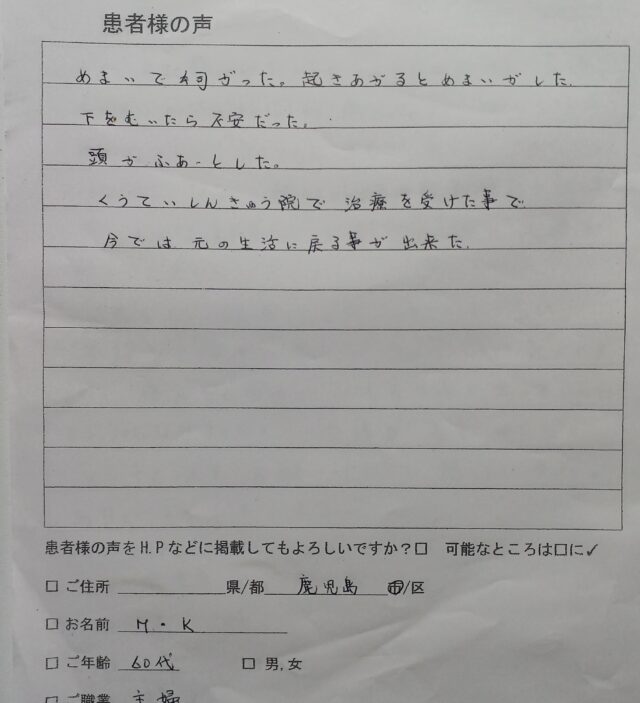 患者様の声
めまいで有司がった。起きあがるとめまいがした.
下をむいたら不安だった.
頭がふあーとした。
くうていしんきゅう院で治療を受けた事で
今では元の生活に戻る事が出来た.
患者様の声をH.Pなどに掲載してもよろしいですか?☐ 可能なところは☐に✓
☐ ご住所 県/都 鹿児島 市/区
☐ お名前 M・K
☐ ご年齢 60代 ☐ 男,女
☐ ご職業 主婦